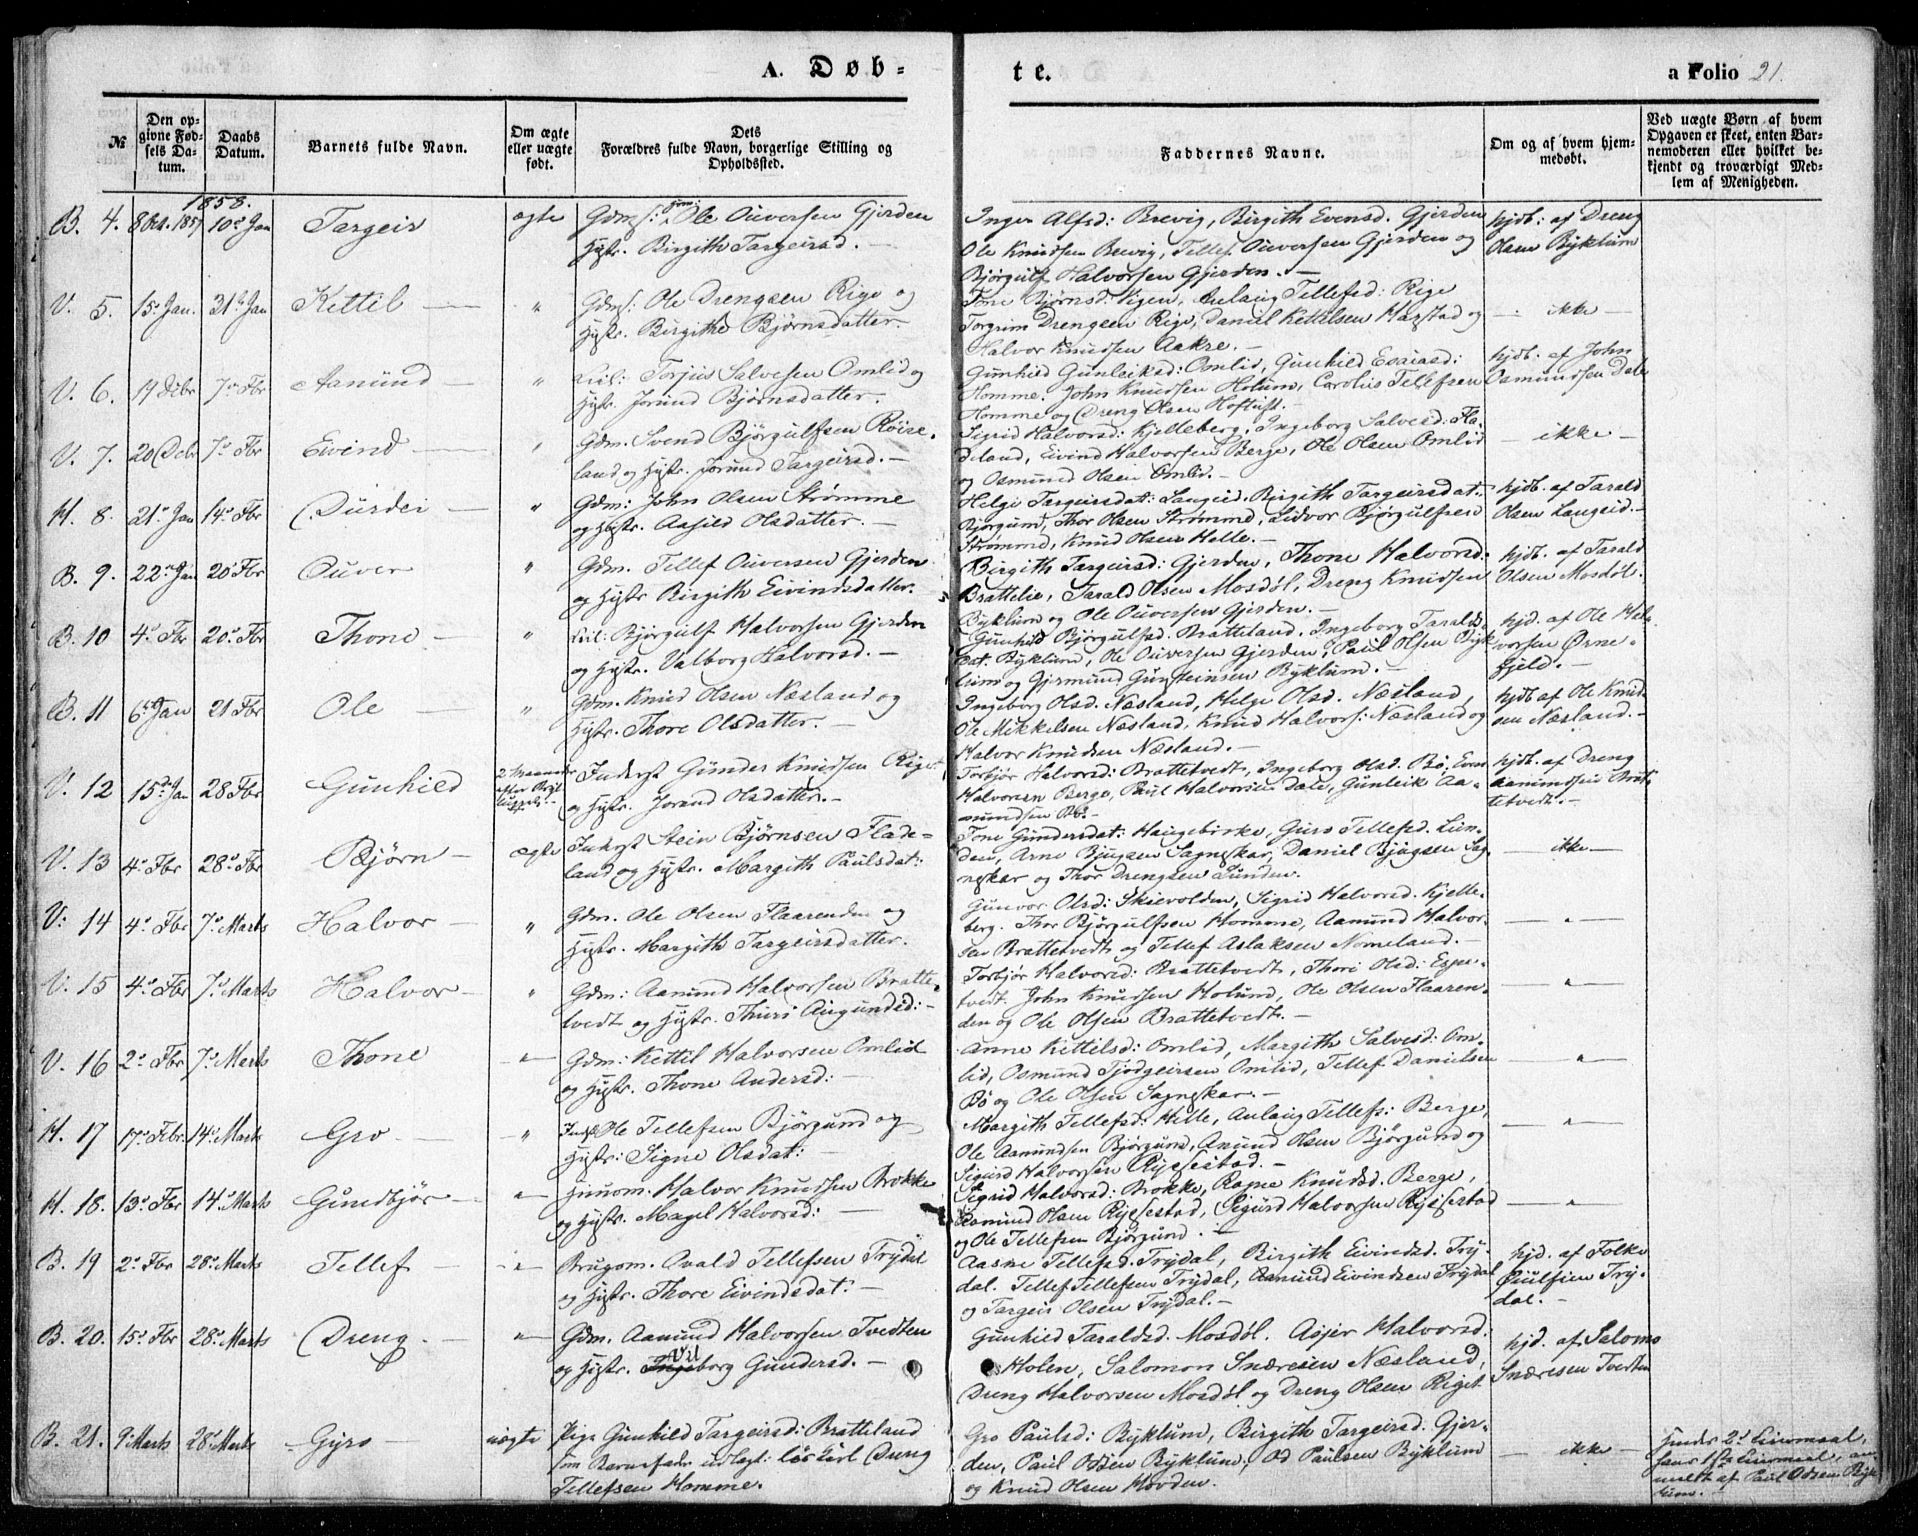 A. Døb-
te.
a Folio 21.
№
Den opgivne Fødsels Datum.
Daabs Datum.
Barnets fulde Navn.
Om ægte eller uægte født.
Dets Forældres fulde Navn, borgerlige Stilling og Opholdssted.
Faddernes Navne.
Om og af hvem hjemmedøbt.
Ved uægte Børn af hvem Opgaven er skeet, enten Barnemoderen eller hvilket bekjendt og troværdigt Medlem af Menigheden.
1858.
B. 4. 8 Oct. 1857 10de Jan Targeir ægte Gdms: Ole Ouversen Gjerden
Hustr. Birgith Targeirsd. —
Inger Alfsd: Brevig, Birgith Evensd. Gjerden
Ole Knudsen Brevig, Tellef Ouversen Gjerden og
Bjørgulf Halvorsen Gjerden. —
hjdb: af Dreng
Olsen Byklum
V. 5. 15 Jan. 31te Jan Kettil — " Gdms: Ole Drengsen Rige og
Hustr. Birgithe Bjørnsdatter.
Tone Bjørnsd: Vigen, Aulaug Tellefsd: Rige
Torgrim Drengsen Rige, Daniel Kettelsen Harstad og
Halvor Knudsen Aakre. —
— ikke —
V. 6. 19 Debr 7de Fbr Aamund — " Torjus Salvesen Omlid og
Hustr. Jorund Bjørnsdatter. —
Gunhild Gunleiksd: Omlid, Gunhild Esaiasd:
Homme. John Knudsen Holum, Carolus Tellefsen
Homme og Dreng Olsen Hoftuft. —
hjdb: af John
Osmundsen Dale
V. 7. 20 Debr 7de Fbr Eivind — " Gdm. Svend Bjørgulfsen Røise-
land og Hustr. Jorund Targeirsd. —
Sigrid Halvorsd: Kjelleberg, Ingeborg Salvesd: Fla-
deland, Eivind Halvorsen Berge, Ole Olsen Omlid
og Osmund Olsen Omlid. —
— ikke —
H. 8. 21de Jan 14de Fbr Durdei — " Gdm: John Olsen Strømme
og Hustr. Aasild Olsdatter. —
Helge Targeirsdat: Langeid. Birgith Targeirsdat:
Bjørgum, Thor Olsen Strømme, Lidvor Bjørgulfsen
Strømme, Knud Olsen Helle. —
hjdb. af Tarald
Olsen Langeid. —
B. 9. 22de Jan 20de Fbr Ouver " Gdm. Tellef Ouversen Gjerden
og Hustr Birgith Eivindsdatter.
Birgith Targeirsd: Gjerden, Thone Halvorsd:
Brattelie, Tarald Olsen Mosdøl, Dreng Knudsen
Byklum og Ole Ouversen Gjerden. —
hjdb. af Tarald
Olsen Mosdøl.
B. 10 4de Fbr 20de Fbr Thone — " Bjørgulf Halvorsen Gjerden
og Hustr. Valborg Halvorsd. —
Gunhild Bjørgulfsd. Bratteland. Ingeborg Taralds-
dat. Byklum, Ole Ouversen Gjerden, Paul Olsen Byk-
lum og Gjermund Gunsteinsen Byklum. —
hjd. af Ole Hal-
vorsen Ørne-
fjeld. —
B. 11 6te Jan 21 Fbr Ole — " Gdm. Knud Olsen Næsland og
Hustr. Thore Olsdatter. —
Ingeborg Olsd. Næsland, Helge Olsd. Næsland,
Ole Mikkelsen Næsland, Knud Halvors: Næsland og
Halvor Knudsen Næsland. —
hjdb af Ole Knud-
sen Næsland. —
V. 12 15de Jan 28 Fbr Gunhild 2 Maaneder
efter Bryl-
luppet. —
Inderst Gunder Knudsen Riget
og Hustr. Jorand Olsdatter. —
Torbjør Halvorsd: Brattetvedt, Ingeborg Olsd. Bø, Even
Halvorsen Berge, Paul Halvorsen Dale, Gunleik Aa-
mundsen Bø. —
hjdb. af Dreng
Aamundsen Brat-
tetvedt. —
V. 13 4de Fbr 28de Fbr Bjørn — ægte Inderst Stein Bjørnsen Flade-
land og Hustr. Margith Paulsdat:
Tone Gundersdat: Haugebirke, Guro Tellefsd. Lun-
den, Arne Bjugsen Sagneskar, Daniel Bjugsen Sag-
neskar og Thor Drengsen Lunden.
— ikke —
V. 14 4de Fbr 7de Marts Halvor — " Gdm. Ole Olsen Flaarenden og
Hustr. Margith Targeirsdatter.
Gunvor Olsd: Skievolden, Sigrid Halvorsd. Kjelle-
berg. Thor Bjørgulfsen Homme, Aamund Halvor-
sen Brattetvedt og Tellef Aslaksen Nomeland. —
— " —
V. 15 4de Fbr 7de Marts Halvor — " Gdm: Aamund Halvorsen Bratte-
tvedt og Hustr. Thuri Augundsd: —
Torbjør Halvorsd: Brattetvedt, Thori Olsd: Espe-
tvedt. John Knudsen Holum, Ole Olsen Flaaren-
den og Ole Olsen Brattetvedt. —
— " —
V. 16 2de Fbr 7de Marts Thone — " — Gdm: Kettil Halvorsen Omlid
og Hustr. Thone Andersd: —
Anne Kittilsd: Omlid, Margith Salvesd: Om-
lid, Osmund Tjodgeirsen Omlid, Tellef Danielsen
Bø og Ole Olsen Sagneskar. —
— " —
H. 17 17de Febr. 14de Marts Gro — — " Ole Tellefsen Bjørgum og
Hustr: Signe Olsdat: —
Margith Tellefsd: Helle, Aulaug Tellefs: Berge,
Ole Aamundsen Bjørgum, Amund Olsen Bjørgum og
Sigurd Halvorsen Rysestad. —
— " —
H. 18. 13de Fbr 14de Marts Gundbjør — " — Halvor Knudsen Brokke
og Hustr. Magel Halvorsd: —
Sigrid Halvorsd: Brokke, Ragne Knudsd. Berge,
Aamund Olsen Rysestad, Sigurd Halvorsen Rysestad
og Ole Tellefsen Bjørgum. —
— " —
B. 19 2de Fbr 28de Marts Tellef — — " — Brugsm. Avald Tellefsen Trydal
og Hustr. Thore Eivindsdat: —
Aasne Tellefsd. Trydal, Birgith Eivindsd. Try-
dal. Tellef Tellefsen Trydal, Aamund Eivindsen Trydal
og Targeir Olsen Trydal. —
hjd. af Folke
Trydal. —
B. 20. 15de Fbr 28de Marts Dreng. — " — Gdm. Aamund Halvorsen Tvedten
og Hustr. Ingeborg Gundersd. —
Gunhild Taraldsd. Mosdøl. Asjer Halvorsd.
Holen, Salomon Snæresen Næsland,
Dreng Halvorsen Mosdøl og Dreng Olsen Riget
hjd. af Salomo
Snæresen Tvedten
B. 21. 9de Marts 28de Marts Gyro — uægte Pige Gunhild Targeirsd: Bratteland
som Barnefader udlagt: løs Karl Dreng
Tellefsen Homme.
Gro Paulsd: Byklum, Birgith Targeirsd: Gjer-
den, Paul Odsen Byklum, Od Paulsen Byklum
og Knud Olsen Hovden.
— ikke —
hendes 2det Leiermaal,
hans 1ste Leiermaal, an-
meldt af Paul Odsen Byk-
lum. —